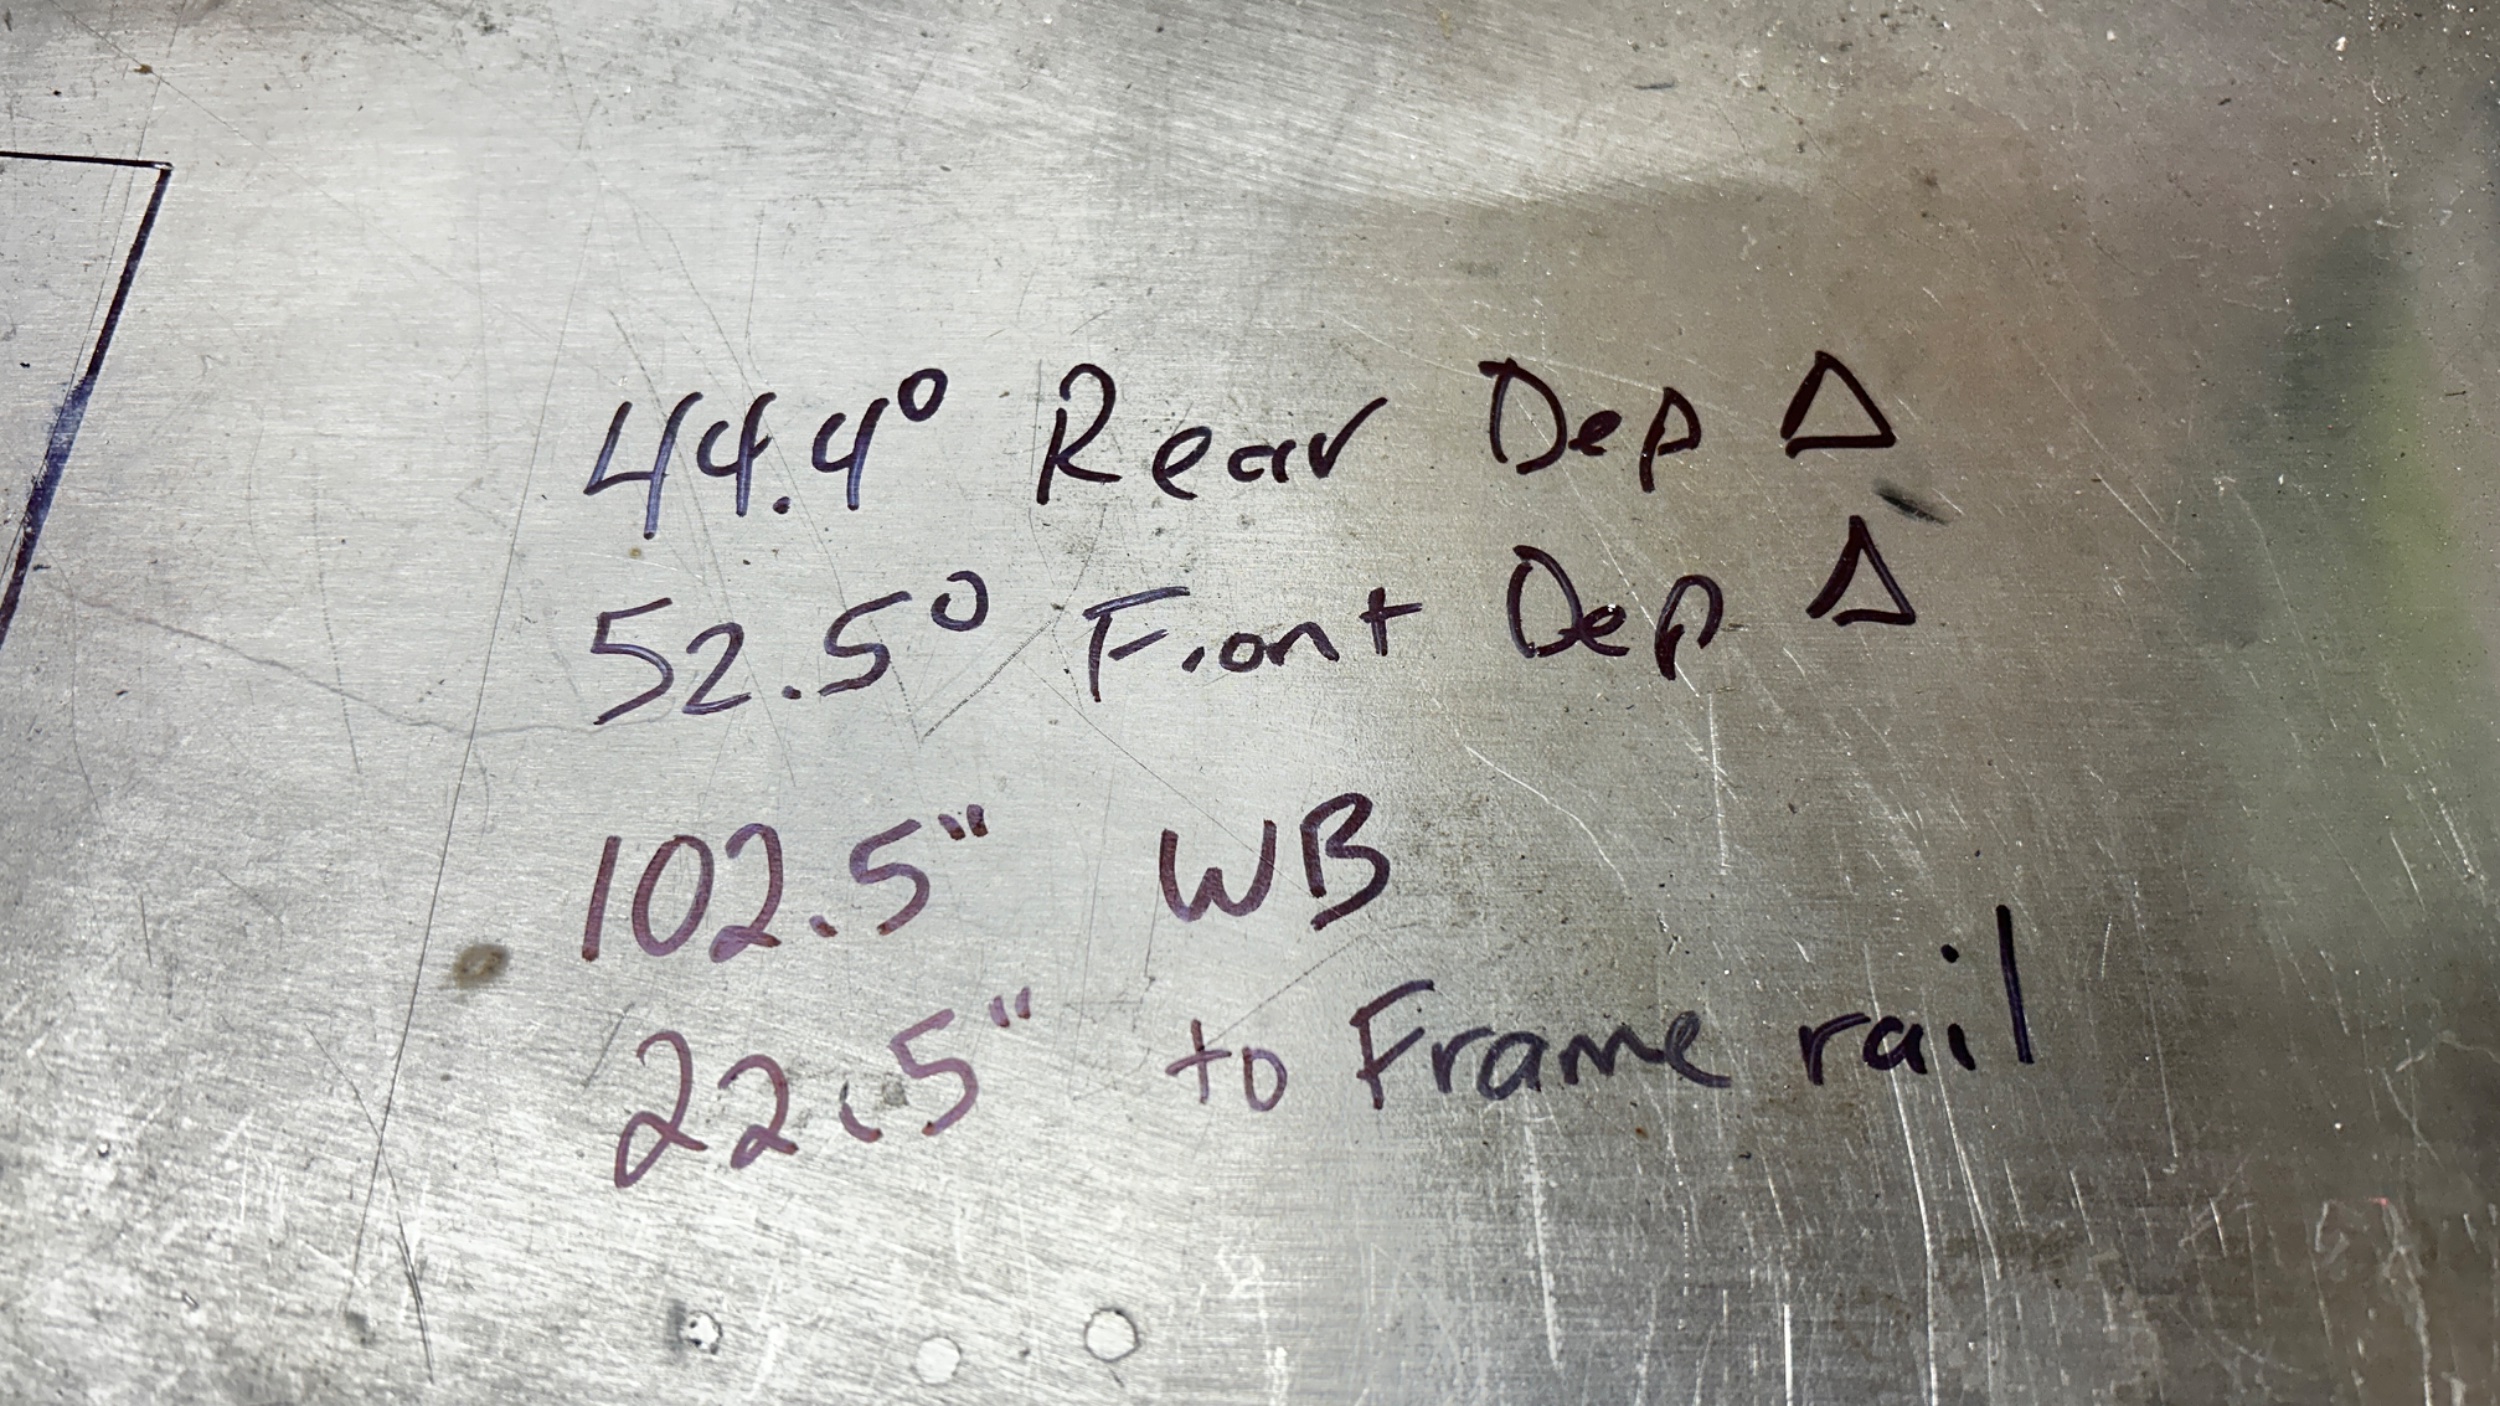 44.4° Rear Dep Δ
52.5° Front Dep Δ
102.5" WB
22.5" to Frame rail